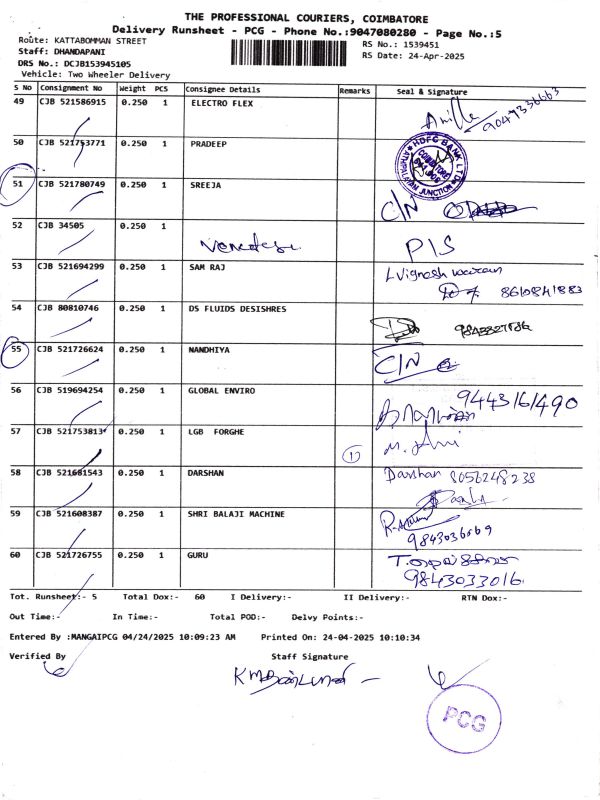 THE PROFESSIONAL COURIERS, COIMBATORE
Delivery Runsheet - PCG - Phone No.:9047080280 - Page No.:5
Route: KATTABOMMAN STREET
RS No.: 1539451
Staff: DHANDAPANI
RS Date: 24-Apr-2025
DRS No.: DCJB153945105
Vehicle: Two Wheeler Delivery
S No Consignment No Weight PCS Consignee Details Remarks Seal & Signature
49 CJB 521586915 0.250 1 ELECTRO FLEX
9047336663
50 CJB 521753771 0.250 1 PRADEEP
HDFC BANK LTD
COIMBATORE
JUNCTION
51 CJB 521780749 0.250 1 SREEJA
C/N
52 CJB 34505 0.250 1
P/S
53 CJB 521694299 0.250 1 SAM RAJ
8610841883
54 CJB 80810746 0.250 1 DS FLUIDS DESISHRES
55 CJB 521726624 0.250 1 NANDHIYA
C/N
56 CJB 519694254 0.250 1 GLOBAL ENVIRO
9443161490
57 CJB 521753813 0.250 1 LGB FORGHE
1
58 CJB 521681543 0.250 1 DARSHAN
Darshan 8056248238
59 CJB 521608387 0.250 1 SHRI BALAJI MACHINE
9843036069
60 CJB 521726755 0.250 1 GURU
9843033016
Tot. Runsheet:- 5 Total Dox:- 60 I Delivery:- II Delivery:- RTN Dox:-
Out Time:- In Time:- Total POD:- Delvy Points:-
Entered By :MANGAIPCG 04/24/2025 10:09:23 AM Printed On: 24-04-2025 10:10:34
Verified By Staff Signature
PCG